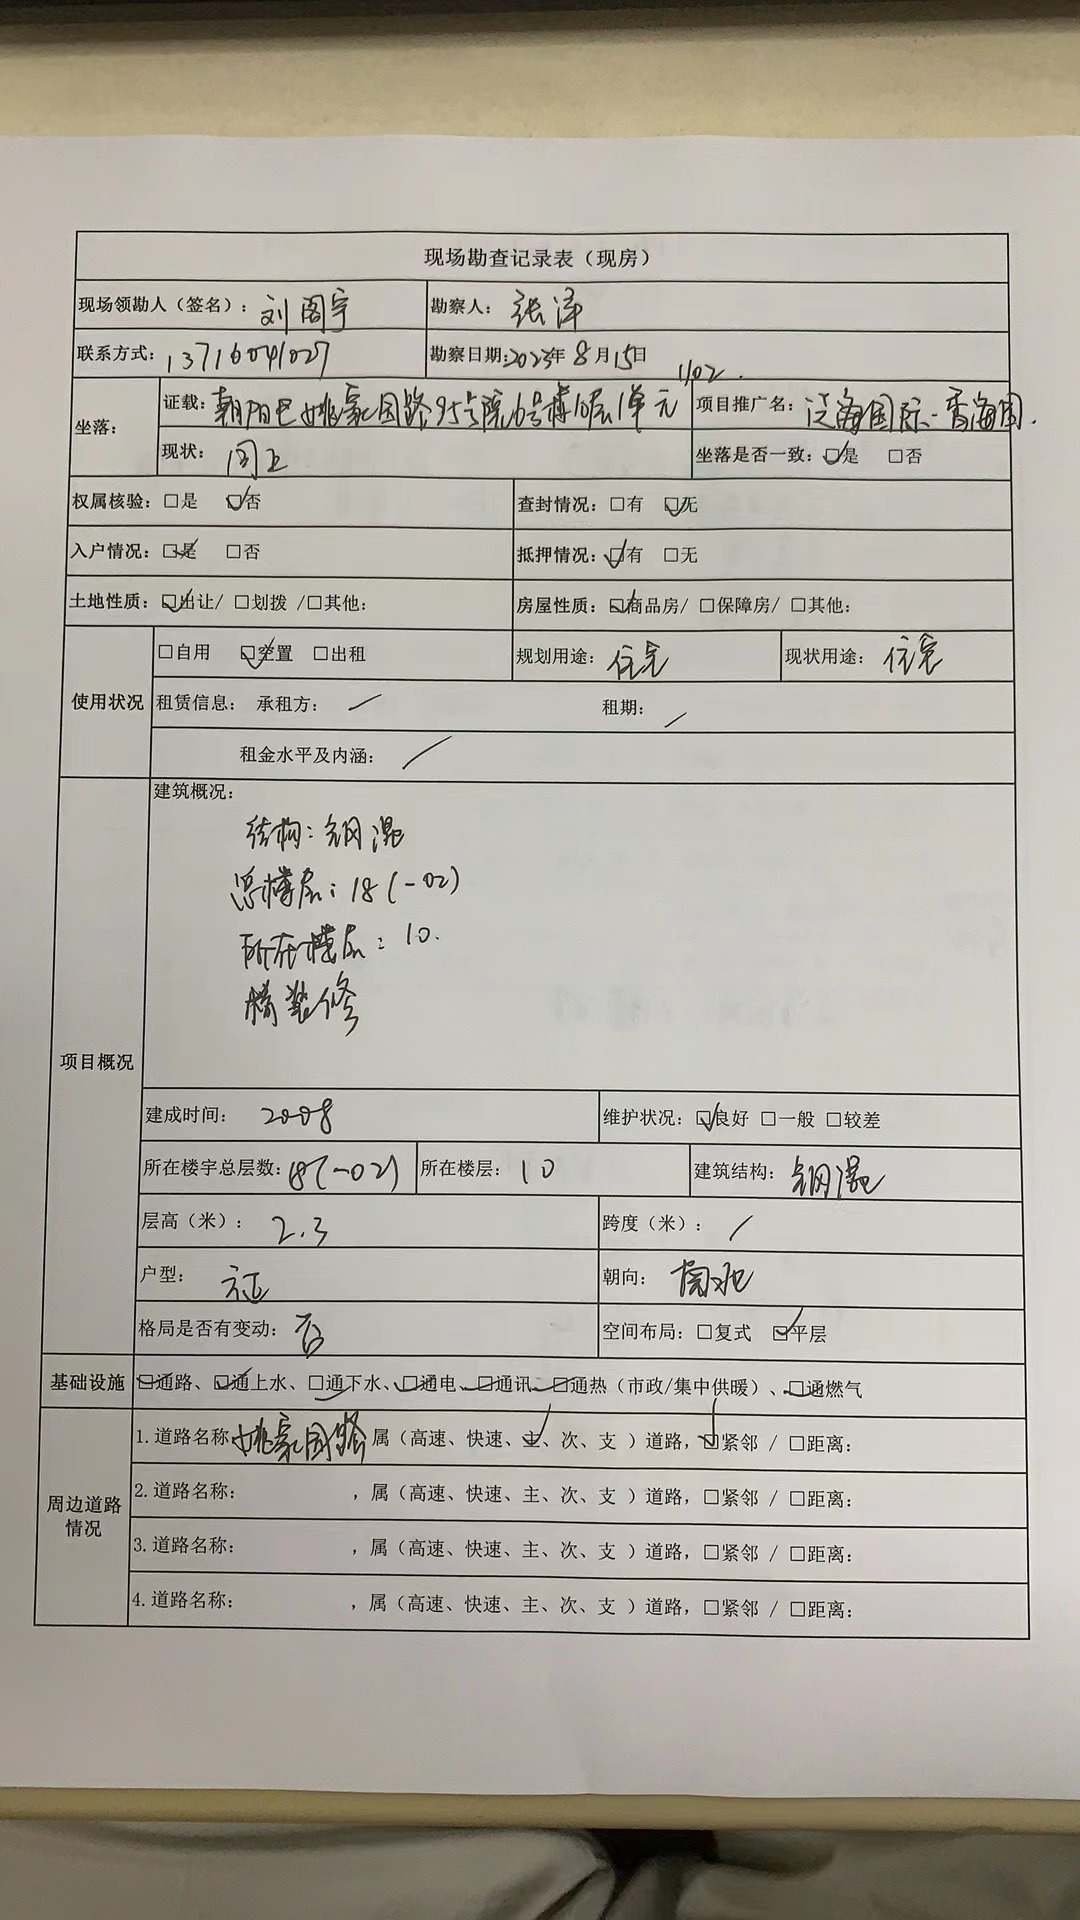 现场勘查记录表（现房）
现场领勘人（签名）：刘阁宇 勘察人：张泽
联系方式：13716041027 勘察日期:2023年8月15日
坐落： 证载：朝阳区姚家园路95号院6号楼10层1单元1102. 项目推广名：泛海国际-香海园.
现状：同上 坐落是否一致：☑是 □否
权属核验：□是 ☑否 查封情况：□有 ☑无
入户情况：☑是 □否 抵押情况：☑有 □无
土地性质：☑出让/ □划拨 /□其他： 房屋性质：☑商品房/ □保障房/ □其他：
使用状况 □自用 ☑空置 □出租 规划用途：住宅 现状用途：住宅
租赁信息： 承租方：／ 租期：／
租金水平及内涵：／
项目概况 建筑概况：
结构：钢混
总楼层：18(-02)
所在楼层：10.
装修
建成时间：2008 维护状况：☑良好 □一般 □较差
所在楼宇总层数：18(-02) 所在楼层：10 建筑结构：钢混
层高（米）：2.3 跨度（米）：／
户型： 朝向：南北
格局是否有变动：否 空间布局：□复式 ☑平层
基础设施 ☑通路、☑通上水、☑通下水、☑通电、☑通讯、☑通热（市政/集中供暖）、☑通燃气
周边道路情况 1.道路名称姚家园路 属（高速、快速、主、次、支 ）道路，☑紧邻 / □距离：
2.道路名称： ，属（高速、快速、主、次、支 ）道路，□紧邻 / □距离：
3.道路名称： ，属（高速、快速、主、次、支 ）道路，□紧邻 / □距离：
4.道路名称： ，属（高速、快速、主、次、支 ）道路，□紧邻 / □距离：